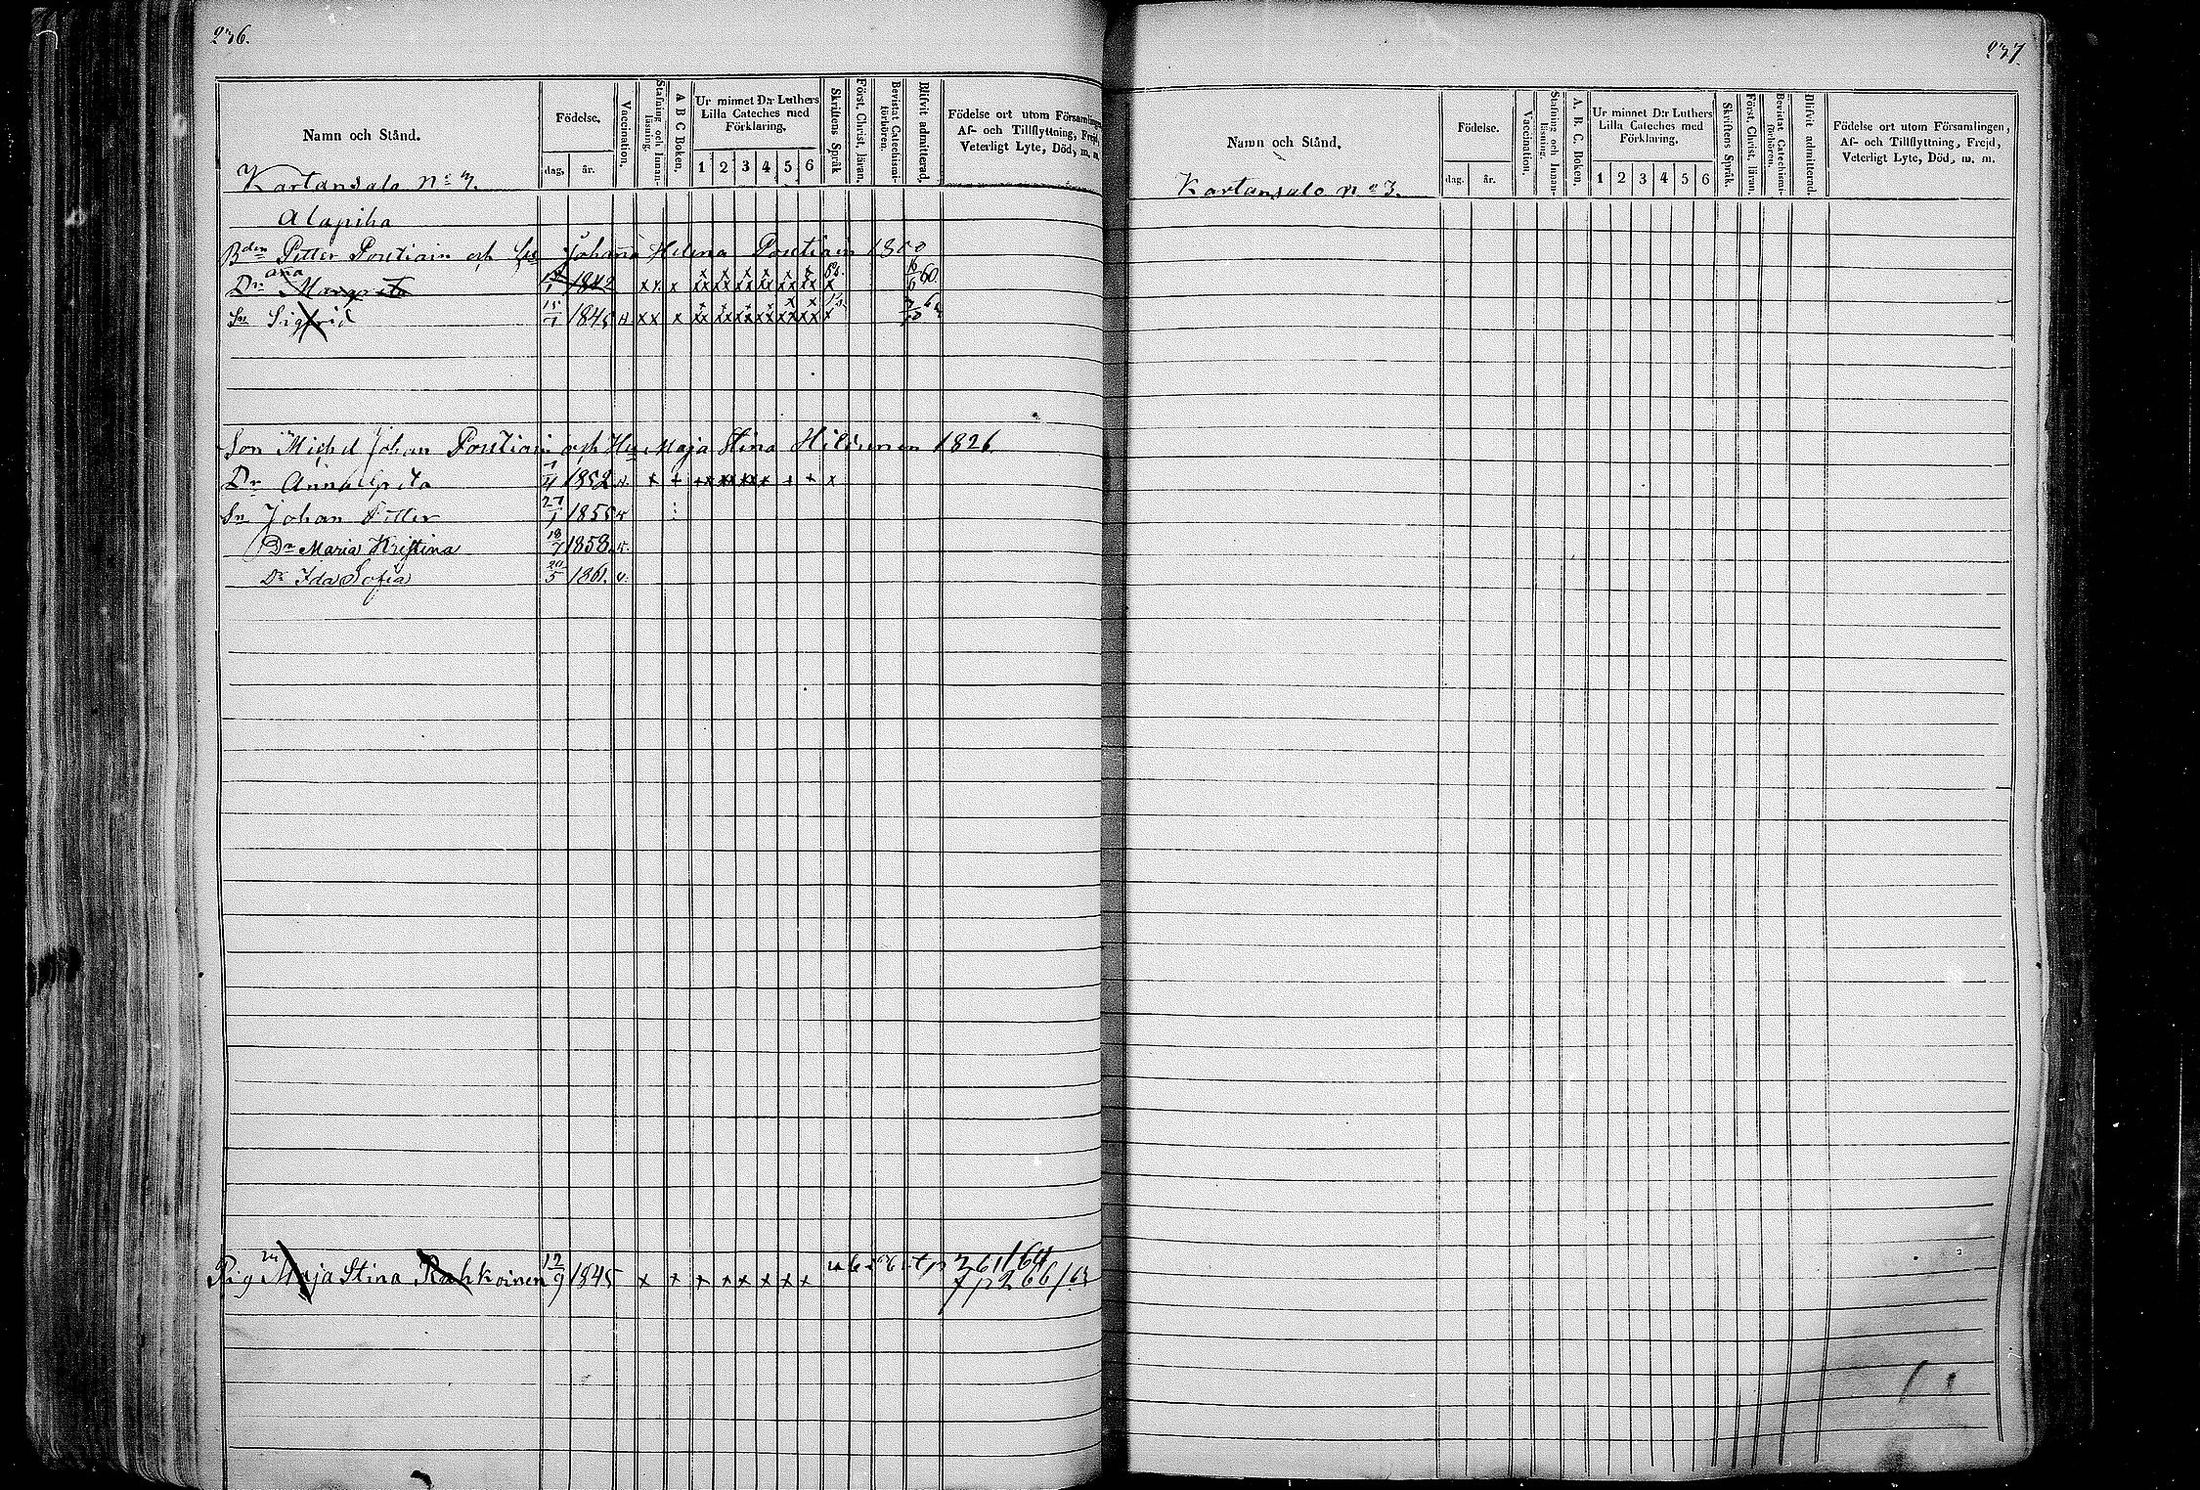 236.
Namn och Stånd.
Födelse.
dag.
år.
Vaccination.
Stafning och Innan-läsning.
A B C Boken.
Ur minnet D:r Luthers
Lilla Cateches med
Förklaring.
1 2 3 4 5 6
Skriftens Språk
Först. Christ. läran.
Bevistat Catechismi-förhören.
Blifvit admitterad.
Födelse ort utom Församlingen,
Af- och Tillflyttning, Frejd,
Veterligt Lyte, Död, m. m.
Kartansalo No 3.
Alapiha
Bden Petter Postiain och Johanna Helena Postiain 1800
Dr Margreta 1842 x x x 16/6 60.
Sn Sigfrid 15/1 1845 x x x
Son Michel Johan Postiain och Hu Maja Stina Hildunen 1826
Dr Anna Greta 1852 x + x
Sn Johan Petter 27/1 1855 v
Dr Maria Kristina 18/7 1858. v.
Dr Ida Sofia 20/5 1861. v.
Pig Maja Stina Rahkoinen 12/9 1845 x x x x x x x x
p 261/64
f p 266/63
237.
Namn och Stånd.
Födelse.
dag.
år.
Vaccination.
Stafning och Innan-läsning.
A. B. C. Boken.
Ur minnet D:r Luthers
Lilla Cateches med
Förklaring.
1 2 3 4 5 6
Skriftens Språk.
Först. Christ. läran.
Bevistat Catechismi-förhören.
Blifvit admitterad.
Födelse ort utom Församlingen,
Af- och Tillflyttning, Frejd,
Veterligt Lyte, Död, m. m.
Kartansalo No 3.